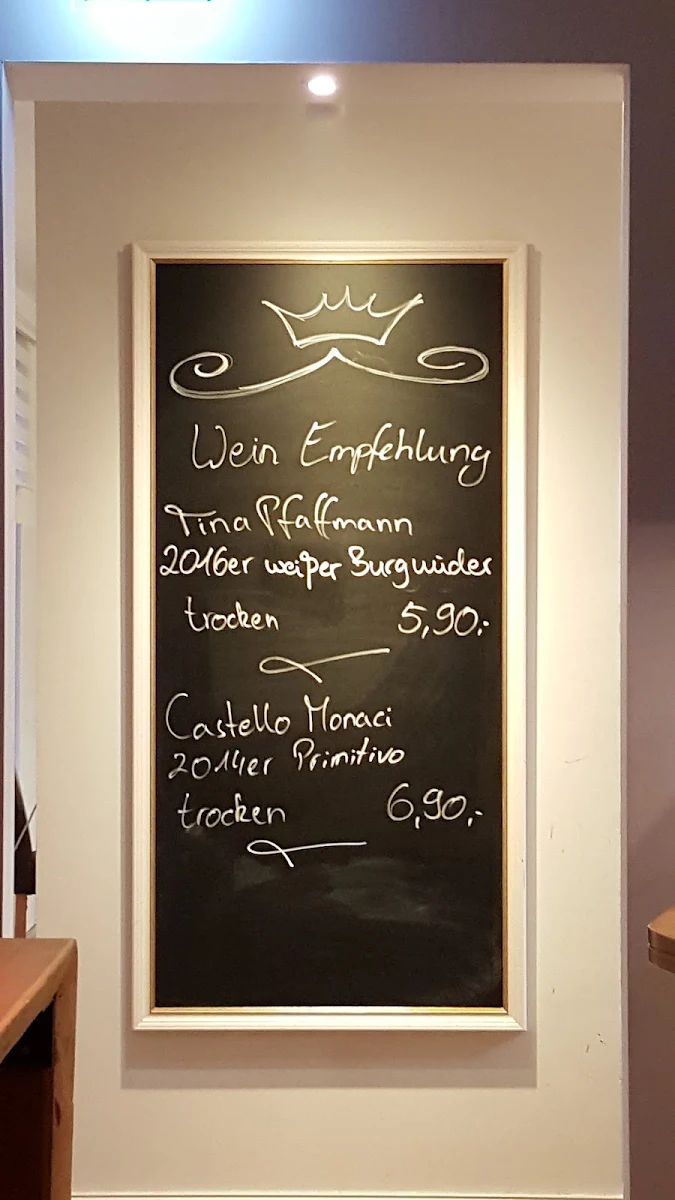 Wein Empfehlung
Tina Pfaffmann
2016er weißer Burgunder
trocken 5,90,-
Castello Monaci
2014er Primitivo
trocken 6,90,-